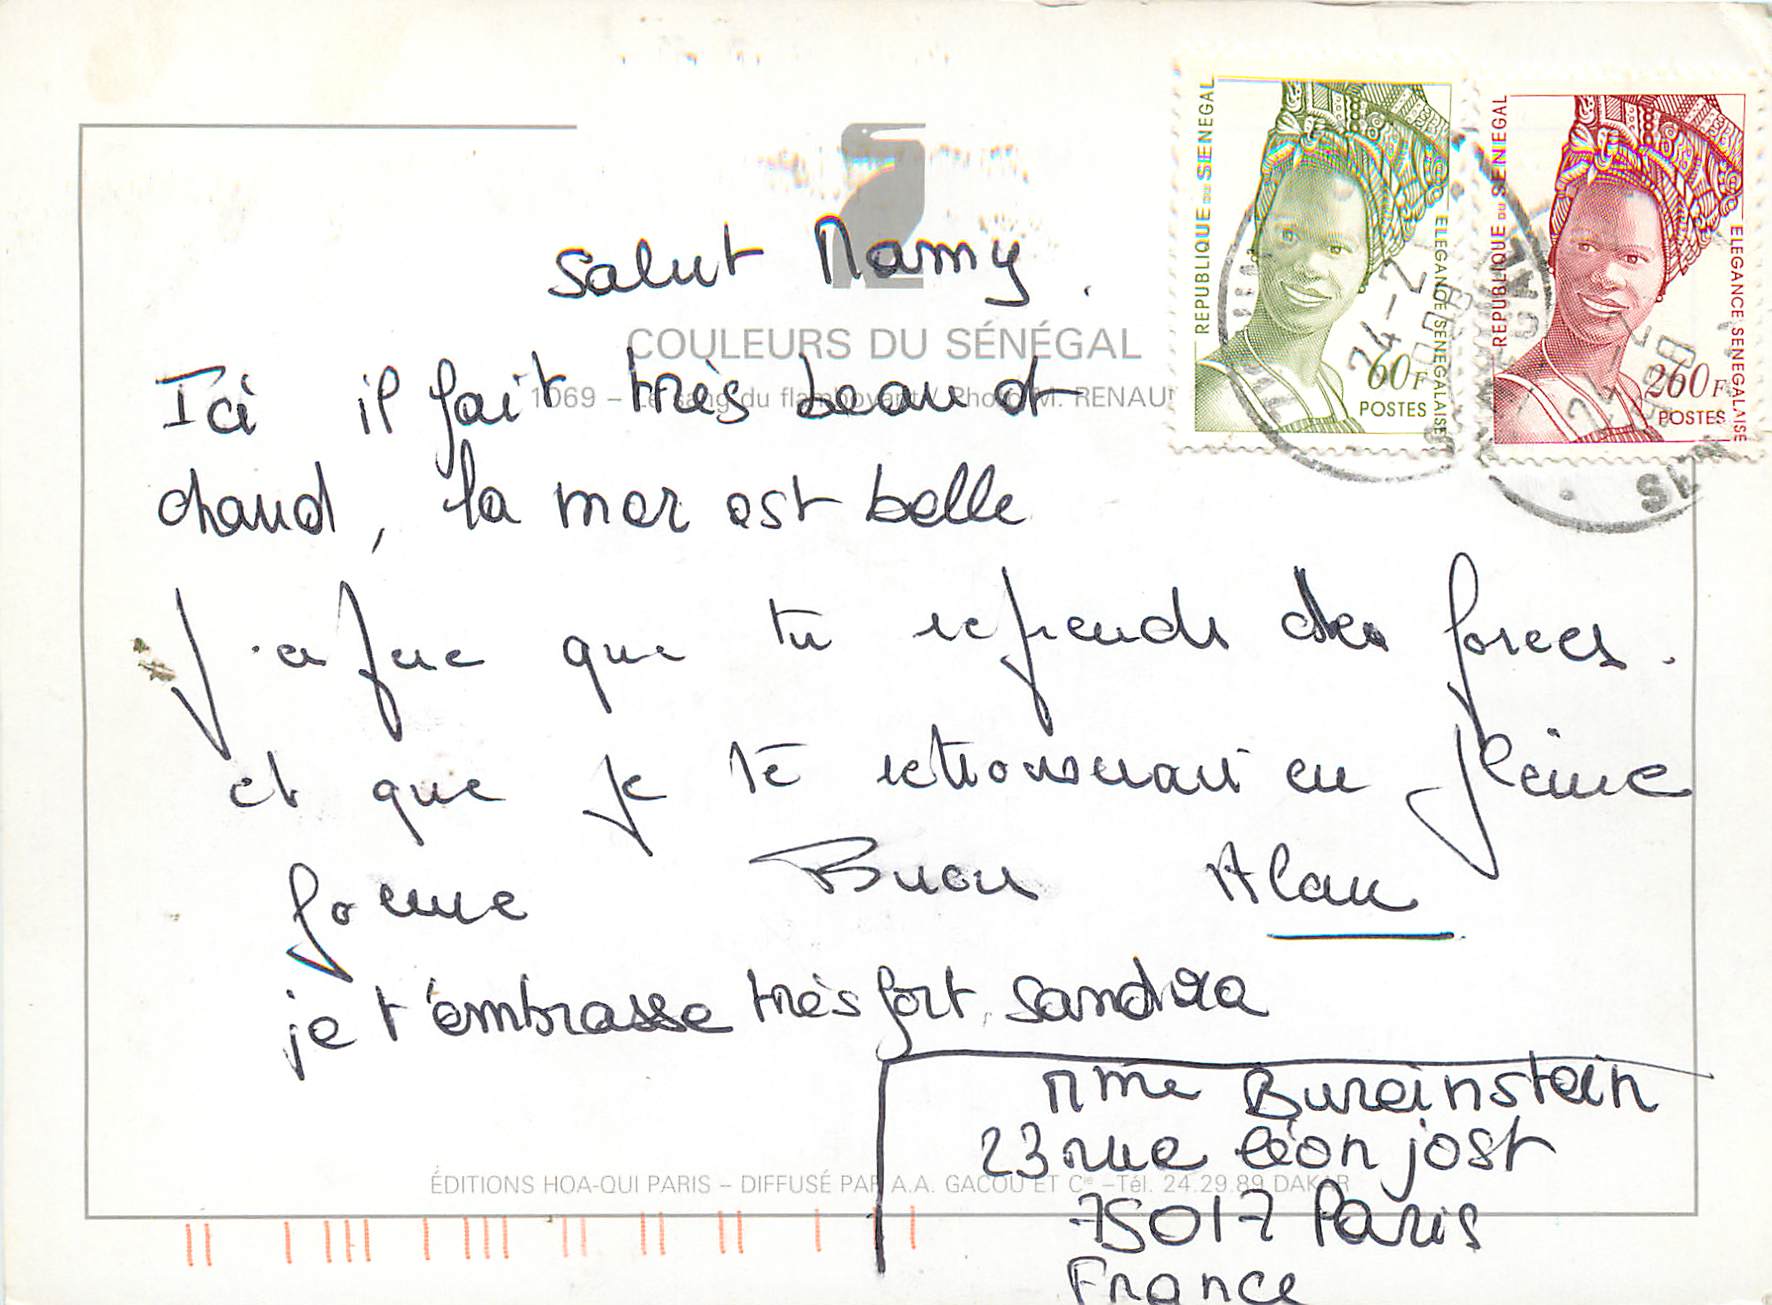 Salut Mamy.
COULEURS DU SÉNÉGAL
1069 – Le sang du flamboyant / Photo M. RENAU
Ici il fait très beau et
chaud, la mer est belle
J'espère que tu reprends des forces.
et que je te retrouverai en pleine
forme Alan
je t'embrasse très fort, Sandra
Mme Bureinstein
23 rue léon jost
75017 Paris
France
ÉDITIONS HOA-QUI PARIS – DIFFUSÉ PAR A.A. GACOU ET Cie – Tél. 24.29.89 DAKAR
REPUBLIQUE DU SENEGAL
ELEGANCE SENEGALAISE
60F
POSTES
REPUBLIQUE DU SENEGAL
ELEGANCE SENEGALAISE
260F
POSTES
24-2
24-2